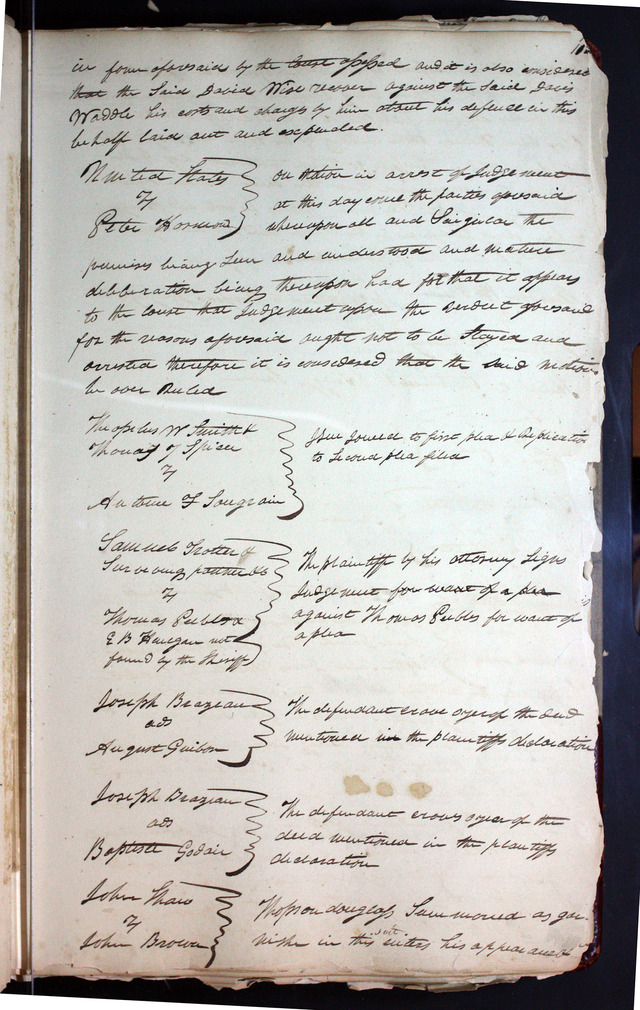 in form aforesaid by the court assessed and it is also considered
that the Said David Wise recover against the said Davis
Waddle his costs and charges by him about his defence in this
behalf laid out and expended.
United States
vs
Peter
on Motion in arrest of Judgement
at this day came the parties aforesaid
whereupon all and Singular the
premises being Seen and understood and mature
deliberation being thereupon had for that it appears
to the court that Judgement upon the verdict aforesaid
for the reasons aforesaid ought not to be Stayed and
arrested therefore it is considered that the said motion
be over Ruled
Theopelus W Smith &
Thomas J Spicer
vs
Antoine F Saugrain
Issue Joined to first plea & Replication
to Second plea filed
Samuel Trotter &
Surviveing partner &c
vs
Thomas Peebles &
E B not
found by the Sheriff
The plaintiff by his attorney Signs
Judgement for want of a plea
against Thomas Peebles for want of
a plea
Joseph Brazeau
ads
August Guibor
The defendant craves oyer of the deed
mentioned in the plaintiffs declaration
Joseph Brazeau
ads
Baptiste Godair
The defendant craves oyer of the
deed mentioned in the plaintiffs
declaration
John Shaw
vs
John Brown
Thopson douglass Summoned as gar
nishe in this suit enters his appearance &